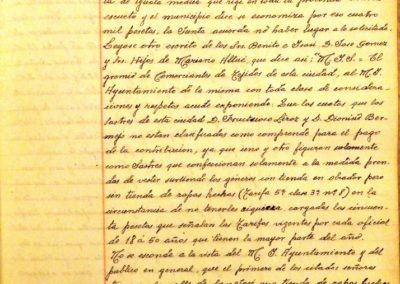 escueto y el municipio dice se economiza por eso cuatro
mil pesetas, la Junta acuerda no haber lugar a lo solicitado.
Leyose otro escrito de los Sres. Benito e José D. José Gomez
y Sres. Hijos de Mariano que dice asi; "M. I. S. = El
gremio de Comerciantes de Tejidos de esta ciudad, al M. I.
Ayuntamiento de la misma con toda clase de considera
ciones y respetos acude exponiendo: Que las cuotas que los
sastres de esta ciudad D. Fructuoso y D. Dionisio Ber-
mejo no estan clasificados como comprende para el pago
de la contribucion, ya que uno y otro figuran solamente
como Sastres que confeccionan solamente a la medida pren-
das de vestir surtiendo los géneros con tienda en obrador pero
sin tienda de ropas hechas (Tarifa 5ª clase 3ª nº 8) en la
circunstancia de no tenerles siquiera cargadas las cincuen-
ta pesetas que señalan las tarifas vigentes por cada oficial
de 18 a 50 años que tienen la mayor parte del año.
No se esconde a la vista del M. I. Ayuntamiento y del
publico en general, que el primero de los citados señores